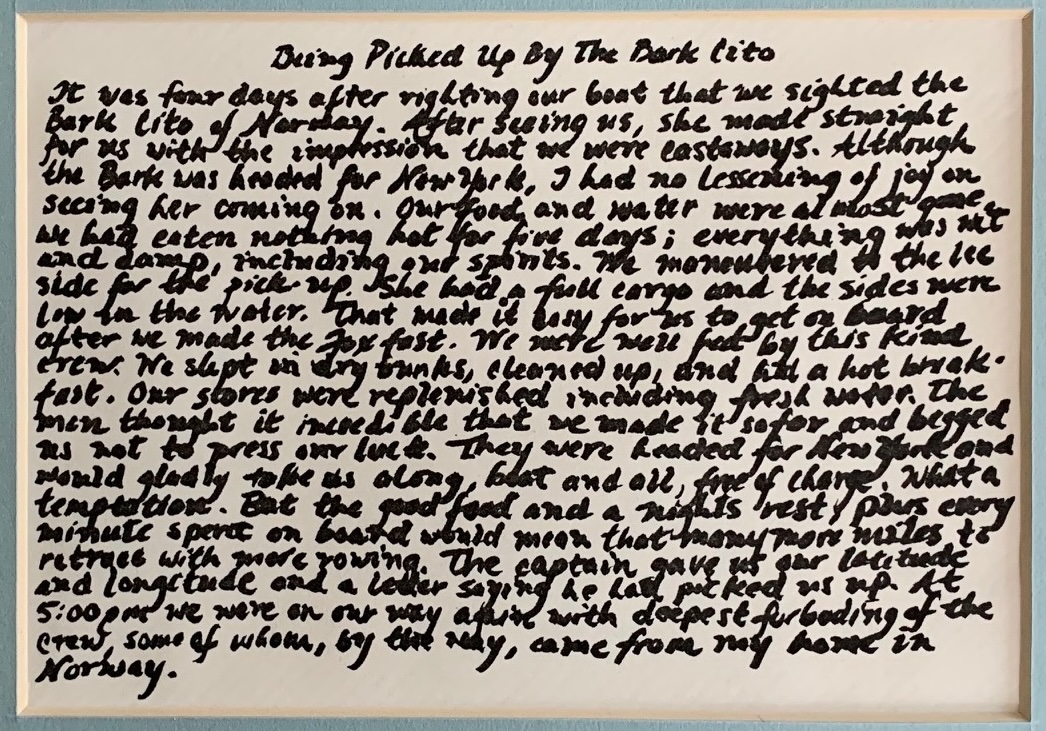 Being Picked Up By The Bark Cito
It was four days after righting our boat that we sighted the
Bark Cito of Norway. After seeing us, she made straight
for us with the impression that we were castaways. Although
the Bark was headed for New York, I had no lessening of joy on
seeing her coming on. Our food and water were almost gone,
we had eaten nothing hot for five days; everything was wet
and damp, including our spirits. We maneuvered to the lee
side for the pick up. She had a full cargo and the sides were
low in the water. That made it easy for us to get on board
after we made the Fox fast. We were well fed by this kind
crew. We slept in dry bunks, cleaned up, and had a hot break-
fast. Our stores were replenished including fresh water. The
men thought it incredible that we made it so far and begged
us not to press our luck. They were headed for New York and
would gladly take us along, boat and all, free of charge. What a
temptation. But the good food and a nights rest, plus every
minute spent on board would mean that many more miles to
retract with more rowing. The captain gave us our latitude
and longitude and a letter saying he had picked us up. At
5:00 pm we were on our way again with deepest furboding of the
crew, some of whom, by the way, came from my home in
Norway.